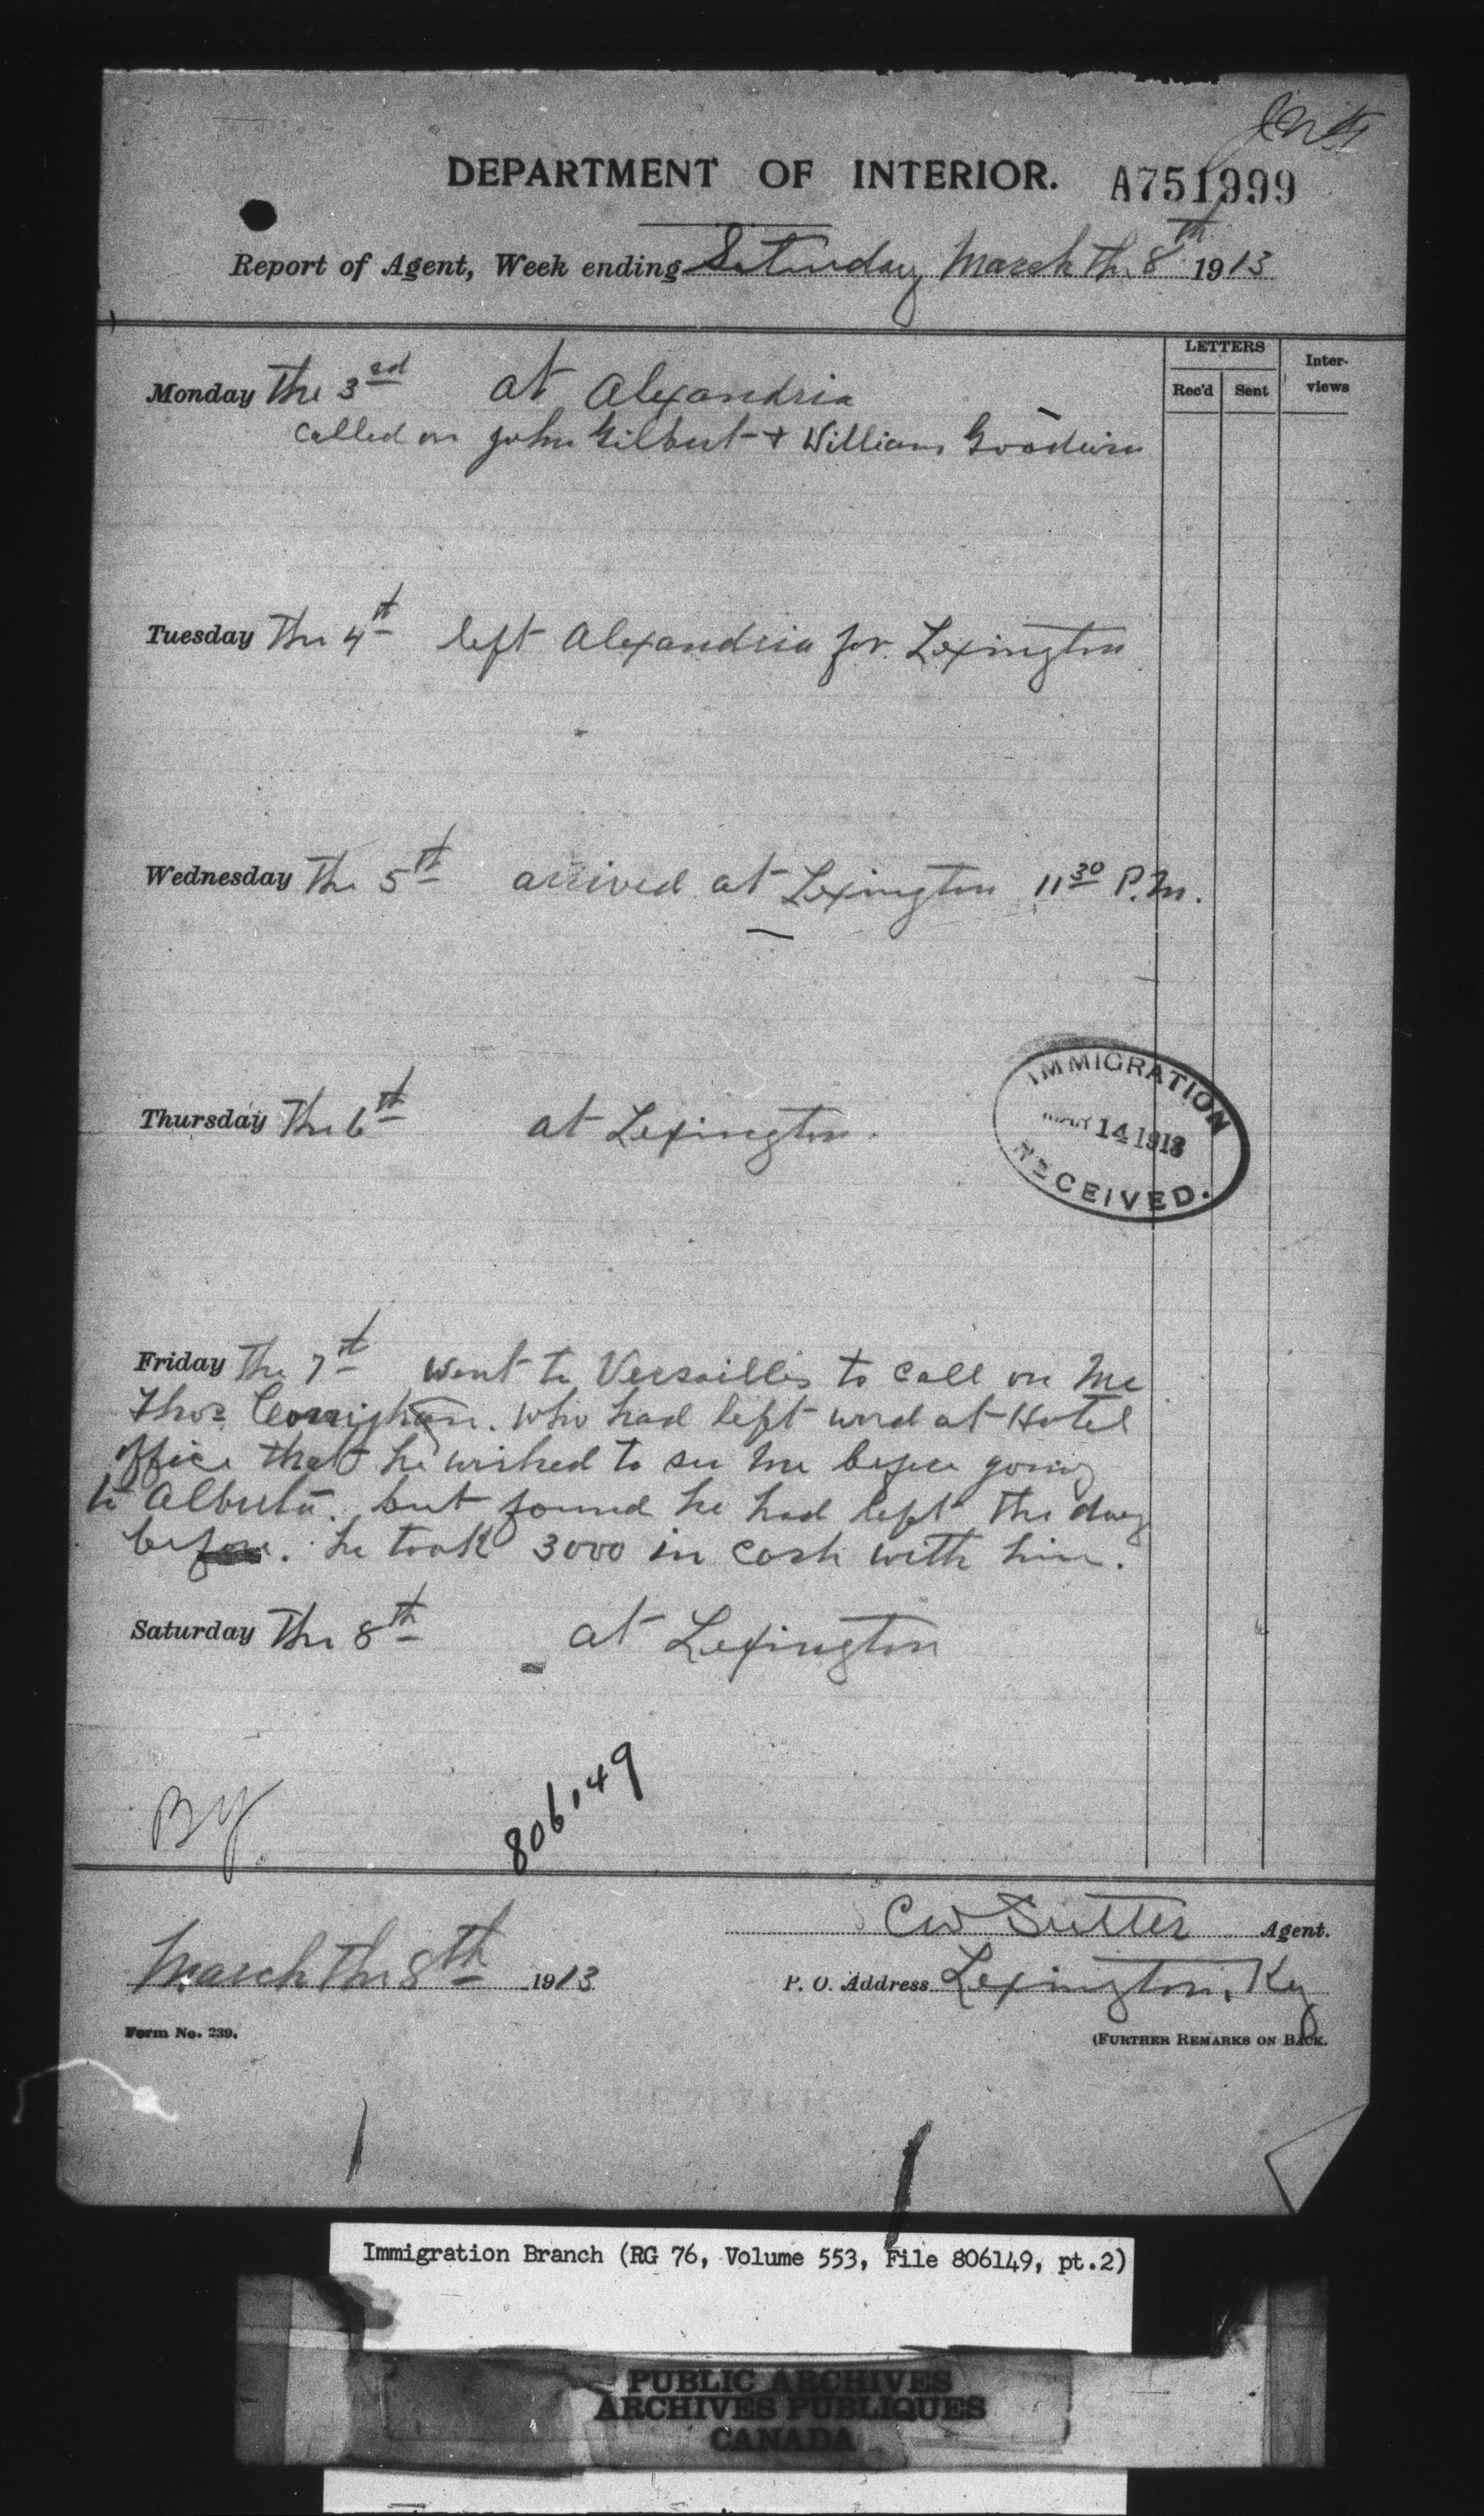 DEPARTMENT OF INTERIOR. A751999
Report of Agent, Week ending Saturday March the 8th 1913
LETTERS
Inter-views
Rec'd Sent
Monday the 3rd at Alexandria
called on John Gilbert + William Goodwin
Tuesday the 4th left Alexandria for Lexington
Wednesday the 5th arrived at Lexington 11 30 P.M.
Thursday the 6th at Lexington.
IMMIGRATION
MAR 14 1913
RECEIVED.
Friday the 7th went to Versailles to call on Mr
Thos Corrighan. who had left word at Hotel
office that he wished to see me before going
to Alberta. but found he had left the day
before. he took 3000 in cash with him.
Saturday the 8th at Lexington
By
806149
CW Sutter Agent.
March the 8th 1913
P. O. Address Lexington, Ky
Form No. 239.
(FURTHER REMARKS ON BACK.
Immigration Branch (RG 76, Volume 553, File 806149, pt.2)
PUBLIC ARCHIVES
ARCHIVES PUBLIQUES
CANADA